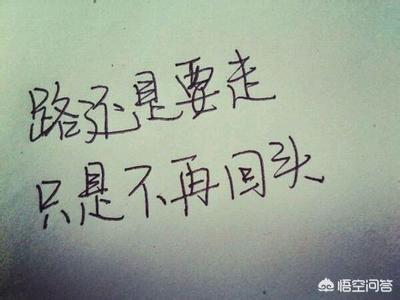 路还是要走
只是不再回头
悟空问答